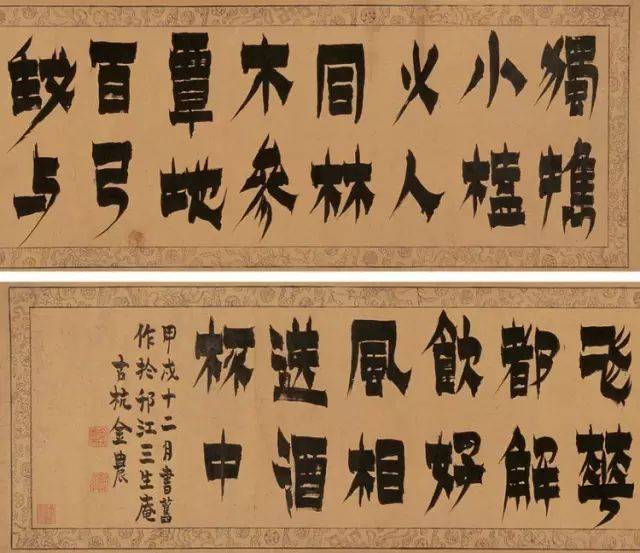 獨攜
小榼
少人
同林
木參
覃地
百弓
与
飛華
都解
飲好
風相
送酒
杯中
甲戌十二月書舊
作於邗江三生庵
古杭金農